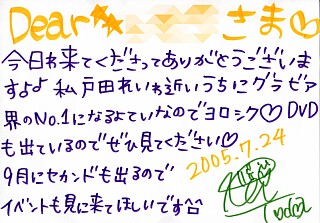 Dear さま♡
今日わ来てくださってありがとうございま
すよ♪ 私 戸田れいわ近いうちにグラビア
界のNo.1になるよていなのでヨロシク♡ DVD
も出ているのでぜひ見てください♡
2005.7.24
9月にセカンドも出るので
イベントも見に来てほしいです^^